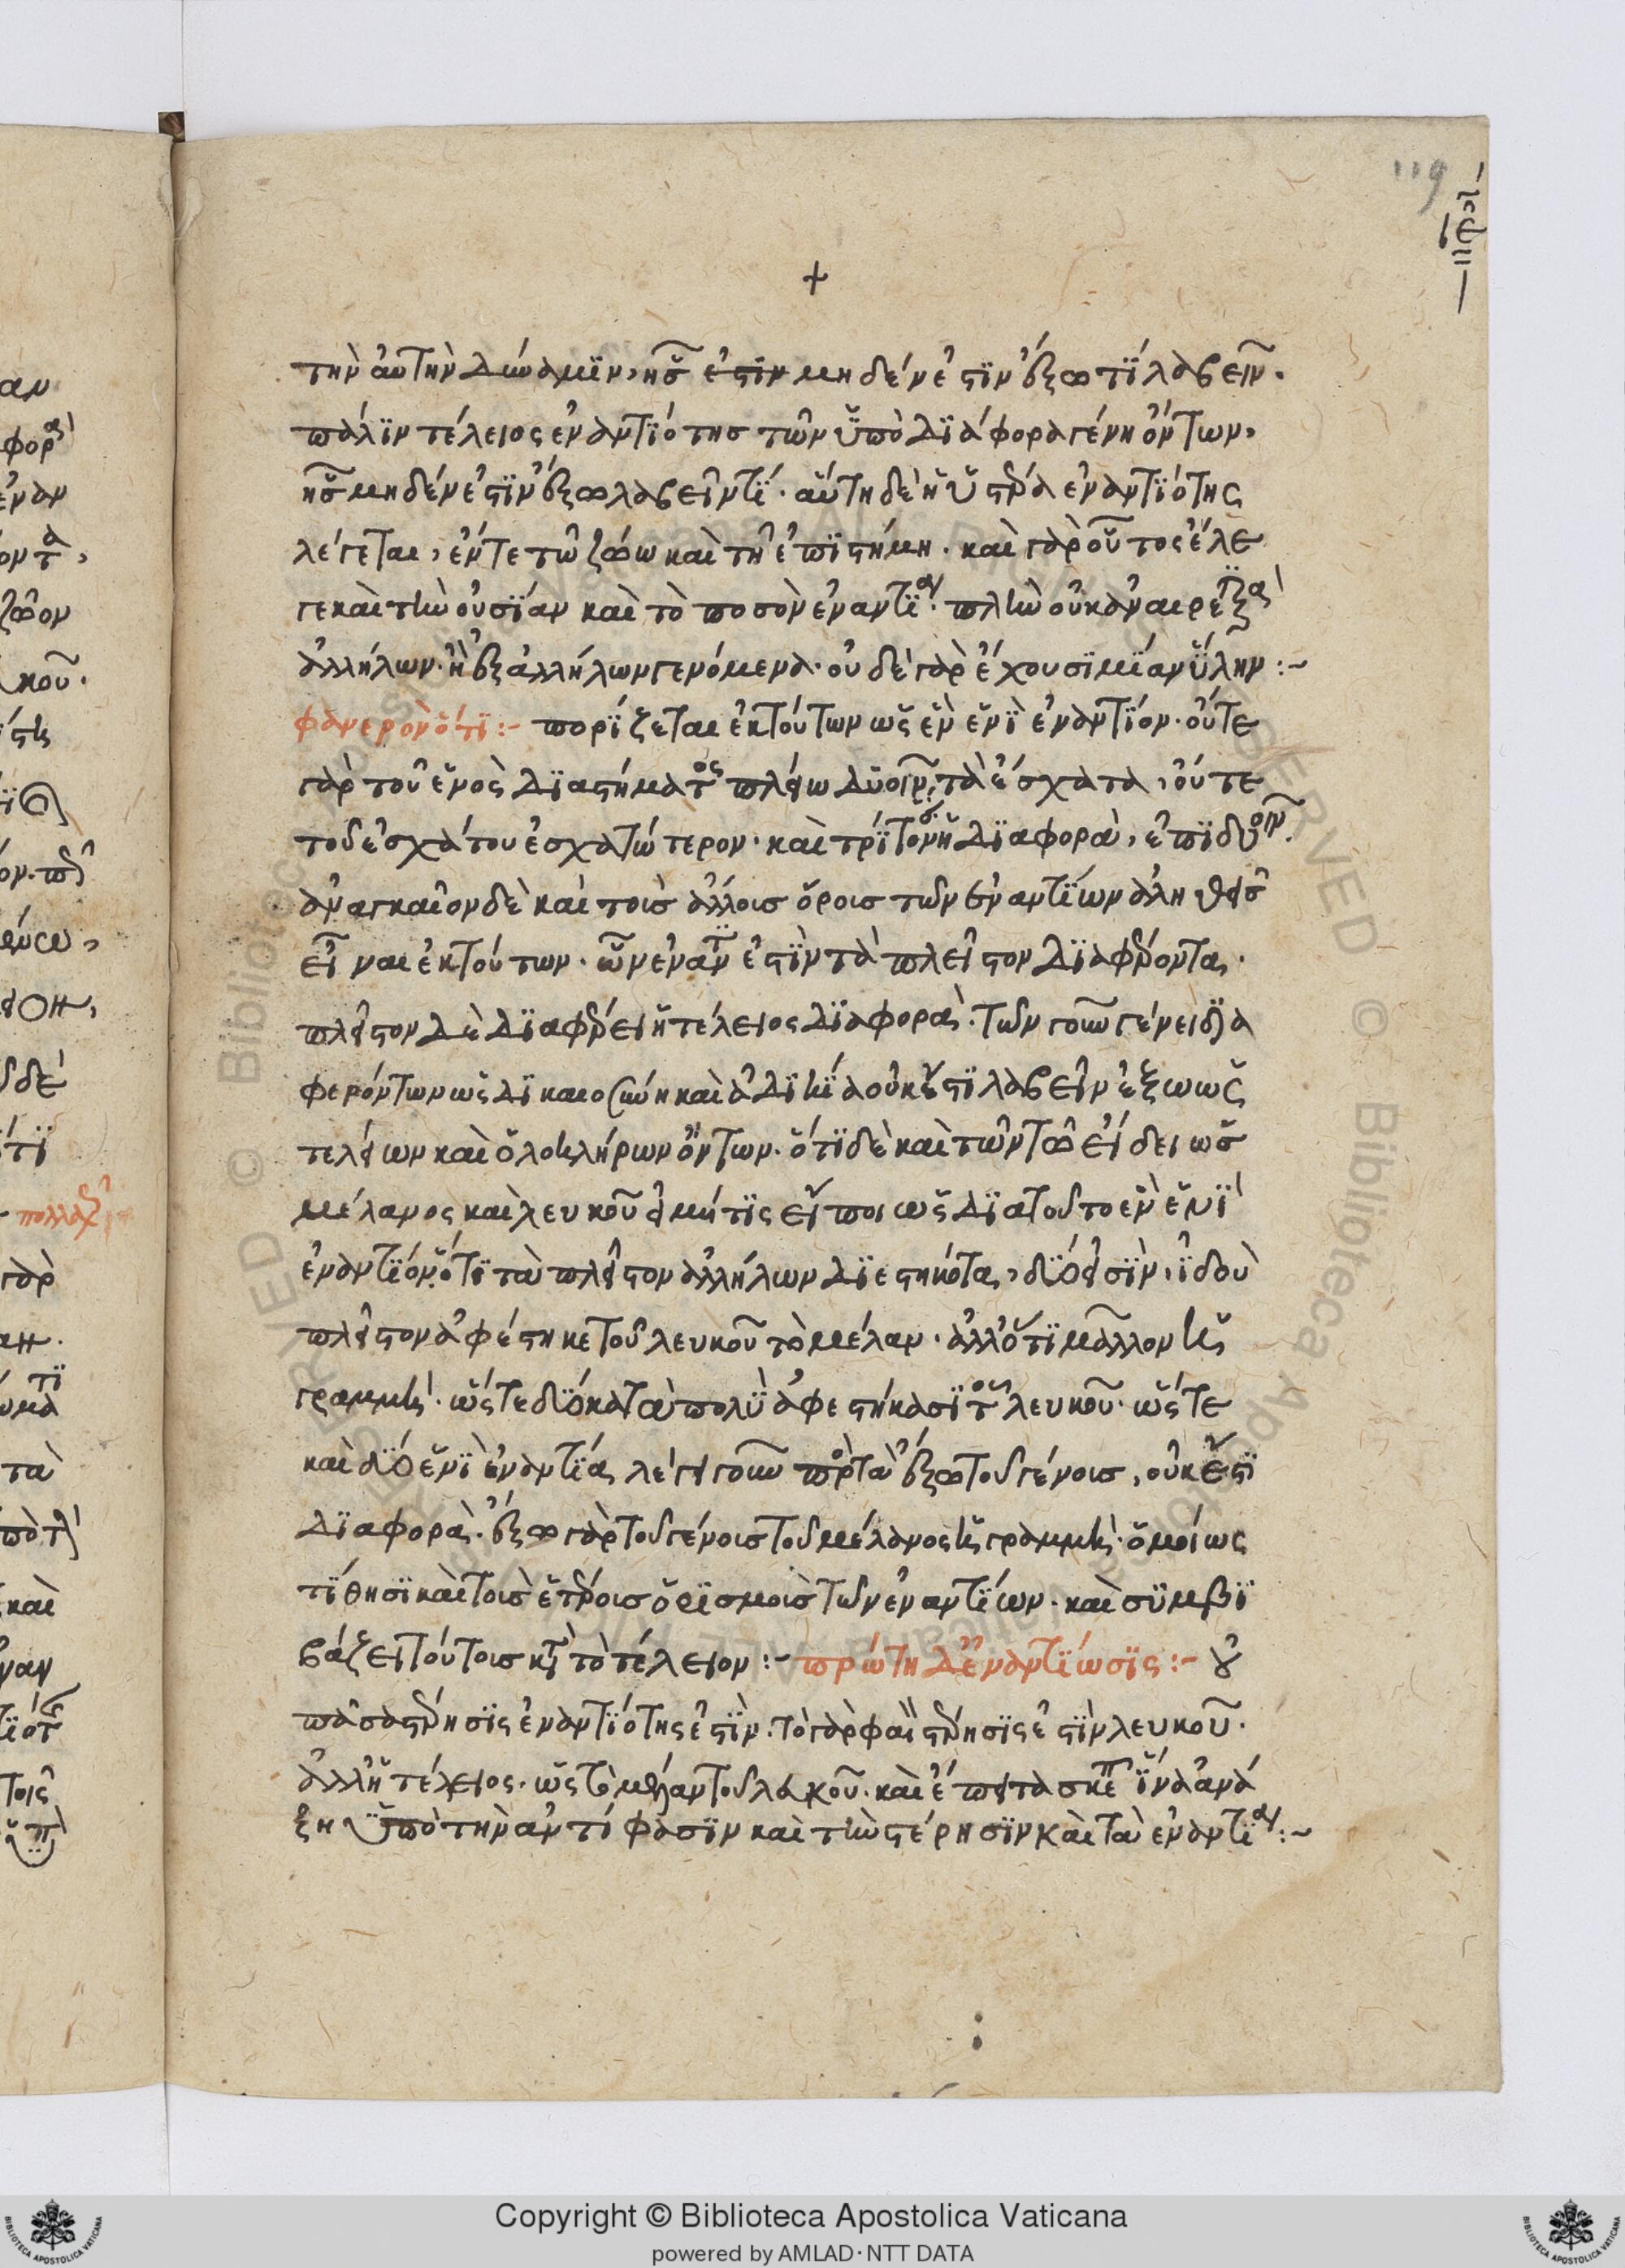 119
+
τὴν αὐτὴν δύναμιν, ἧς ἐστιν μηδέν ἐστιν ἔξω τί λαβεῖν.
πάλιν τέλειος ἐναντιότης τῶν ὑπὸ διάφορα γένη ὄντων,
ἧς μηδέν ἐστιν ἔξω λαβεῖν τί. αὕτη δὲ ἡ ὑστέρα ἐναντιότης
λέγεται, ἔν τε τῷ ζώω καὶ τῇ ἐπιστήμη. καὶ γὰρ οὗτος ἔλε
γε καὶ τὴν οὐσίαν καὶ τὸ ποσὸν ἐναντία. πλὴν οὐκ ἀναιρετικὰ
ἀλλήλων. ἢ ἐξ ἀλλήλων γενόμενα. οὐδὲ γὰρ ἔχουσι μίαν ὕλην :~
φανερὸν ὅτι :~ πορίζεται ἐκ τούτων ὡς ἓν ἑνὶ ἐναντίον. οὔτε
γὰρ τοῦ ἑνὸς διαστήματος πλείω δυοῖν τὰ ἔσχατα, οὔτε
τοῦ ἐσχάτου ἐσχατώτερον. καὶ τρίτον ἡ διαφορὰ, ἐπὶ δυοῖν.
ἀναγκαῖον δὲ καὶ τοῖς ἄλλοις ὅροις τῶν ἐναντίων ἀληθεῖς
εἶναι ἐκ τούτων. ὧν ἐναντίον ἐστὶν τὰ πλεῖστον διαφέροντα.
πλεῖστον δὲ διαφέρει ἡ τέλειος διαφορὰ. τῶν γοῦν γένει δια
φερόντων ὡς δικαιοσύνη καὶ ἀδικία οὐκ ἔστι λαβεῖν ἔξω ὡς
τελείων καὶ ὁλοκλήρων ὄντων. ὅτι δὲ καὶ τῶν τῷ εἴδει ὡς
μέλανος καὶ λευκοῦ εἰ μή τις εἴποι ὡς διατοῦτο ἓν ἑνὶ
ἐναντίον, ὅτι τὰ πλεῖστον ἀλλήλων διεστηκότα, δύο εἰσὶν, ἰδοὺ
πλεῖστον ἀφέστηκε τοῦ λευκοῦ τὸ μέλαν. ἀλλ' ὅτι μᾶλλον ἡ
γραμμὴ. ὥστε δύο κατὰ πολὺ ἀφεστήκασι τοῦ λευκοῦ. ὥστε
καὶ δύο ἑνὶ ἐναντία, λέγει γοῦν πρὸς τὰ ἔξω τοῦ γένους, οὐκ ἔστι
διαφορὰ. ἔξω γὰρ τοῦ γένους τοῦ μέλανος ἡ γραμμὴ. ὁμοίως
τίθησι καὶ τοῖς ἑτέροις ὁρισμοῖς τῶν ἐναντίων. καὶ συμβι
βάζει τούτοις κατὰ τὸ τέλειον :~ πρώτη δὲ ἐναντίωσις :~ οὐ
πᾶσα στέρησις ἐναντιότης ἐστὶν. τὸ γὰρ φαιὸν στέρησις ἐστὶν λευκοῦ.
ἀλλ' ἡ τέλειος. ὡς τὸ μέλαν τοῦ λευκοῦ. καὶ ἔπειτα σκέπει ἵνα ἀνά
ξη ὑπὸ τὴν ἀντίφασιν καὶ τὴν στέρησιν καὶ τὰ ἐναντία :~
© Biblioteca Apostolica Vaticana ALL RIGHTS RESERVED
Copyright © Biblioteca Apostolica Vaticana
powered by AMLAD·NTT DATA